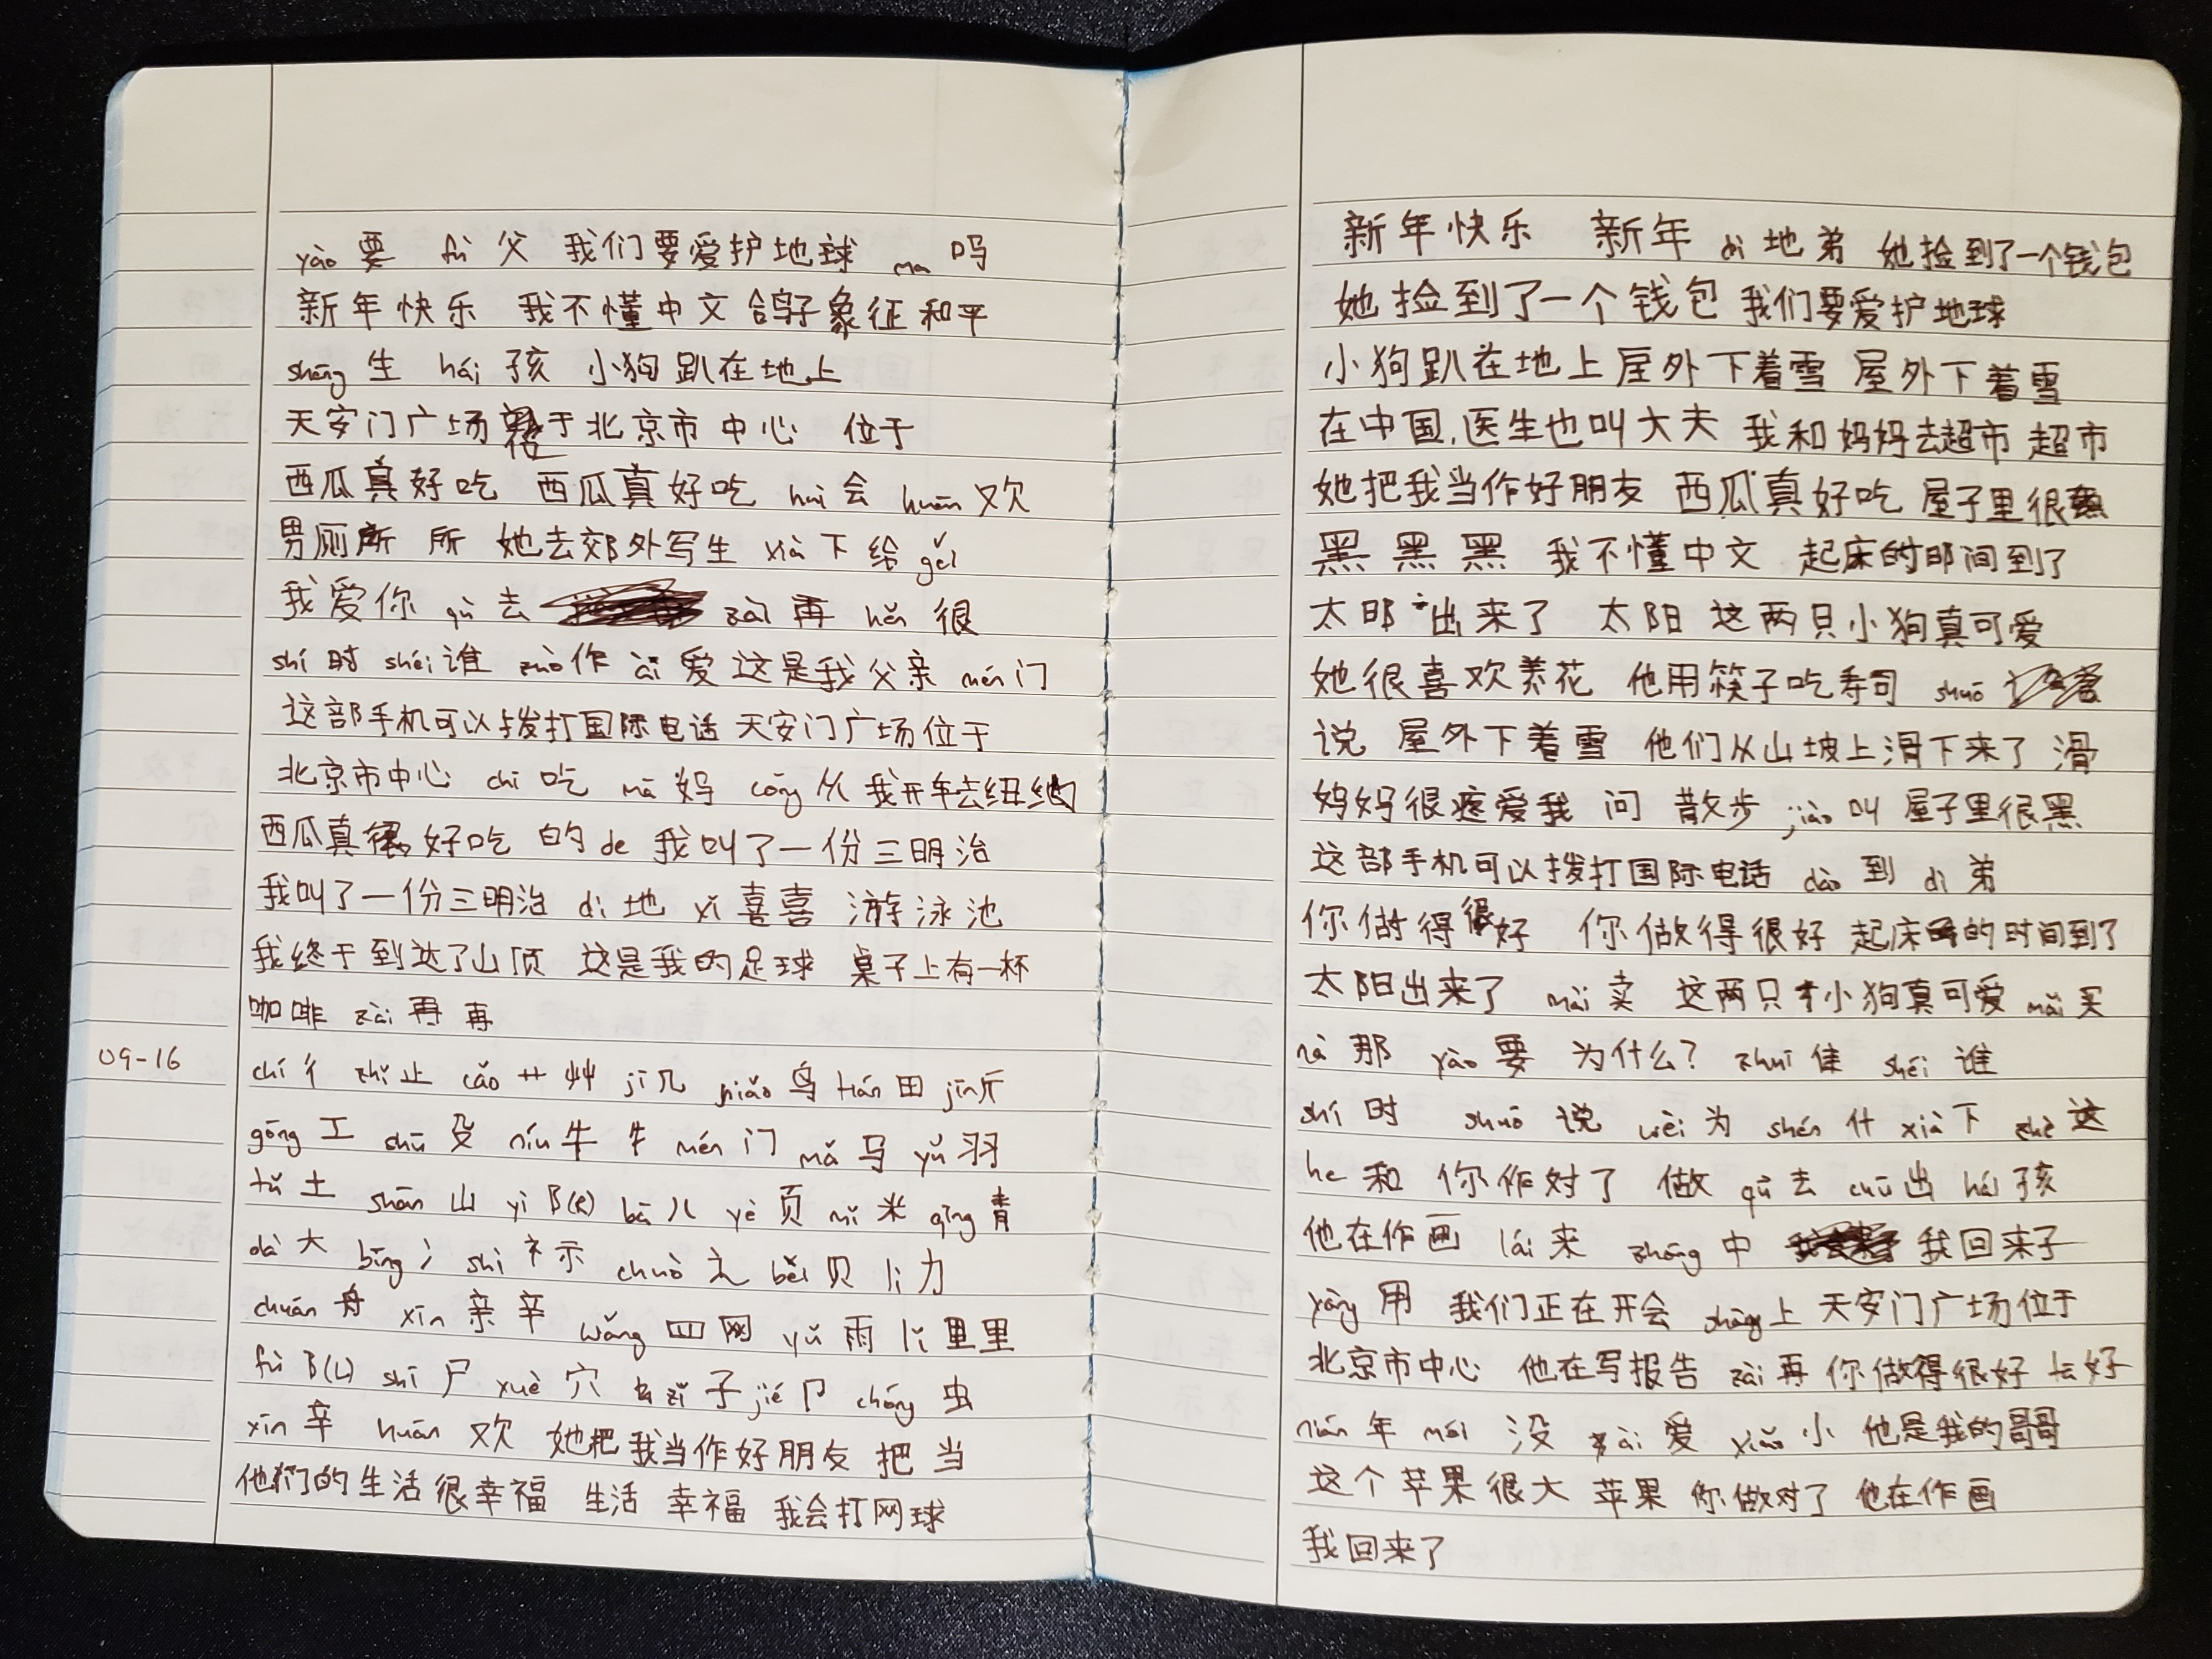 yào 要 fù 父 我们要爱护地球 ma 吗
新年快乐 我不懂中文 鸽子象征和平
shēng 生 hái 孩 小狗趴在地上
天安门广场位于北京市中心 位于
西瓜真好吃 西瓜真好吃 huì 会 huān 欢
男厕所 所 她去郊外写生 xià 下 给 gěi
我爱你 qù 去 zài 再 hěn 很
shí 时 shéi 谁 zuò 作 ài 爱 这是我父亲 mén 门
这部手机可以拨打国际电话 天安门广场位于
北京市中心 chī 吃 mā 妈 cóng 从 我开车去纽约
西瓜真好吃 的 de 我叫了一份三明治
我叫了一份三明治 dì 地 xǐ 喜喜 游泳池
我终于到达了山顶 这是我的足球 桌子上有一杯
咖啡 zài 再 再
09-16
chí 彳 zhǐ 止 cǎo 艹 艸 jī 几 niǎo 鸟 tián 田 jīn 斤
gōng 工 shū 殳 níu 牛 牜 mén 门 mǎ 马 yǔ 羽
tǔ 土 shān 山 yì 阝(R) bā 八 yè 页 mǐ 米 qīng 青
dà 大 bīng 冫 shì 礻示 chuò 辶 bèi 贝 lì 力
chuán 舟 xīn 亲 辛 wǎng 罒 网 yǔ 雨 lǐ 里里
fù 阝(L) shī 尸 xuè 穴 zǐ 子 jié 卩 chóng 虫
xīn 辛 huān 欢 她把我当作好朋友 把 当
他们的生活很幸福 生活 幸福 我会打网球
新年快乐 新年 dì 地 弟 她捡到了一个钱包
她捡到了一个钱包 我们要爱护地球
小狗趴在地上 屋外下着雪 屋外下着雪
在中国,医生也叫大夫 我和妈妈去超市 超市
她把我当作好朋友 西瓜真好吃 屋子里很黑
黑 黑 黑 我不懂中文 起床的时间到了
太阳出来了 太阳 这两只小狗真可爱
她很喜欢养花 他用筷子吃寿司 shuō
说 屋外下着雪 他们从山坡上滑下来了 滑
妈妈很疼爱我 问 散步 jiào 叫 屋子里很黑
这部手机可以拨打国际电话 dào 到 dì 弟
你做得很好 你做得很好 起床的时间到了
太阳出来了 mài 卖 这两只小狗真可爱 mǎi 买
nà 那 yào 要 为什么? zhuī 隹 shéi 谁
shí 时 shuō 说 wèi 为 shén 什 xià 下 zhè 这
he 和 你作对了 做 qù 去 chū 出 hái 孩
他在作画 lái 来 zhōng 中 我回来了
yòng 用 我们正在开会 shàng 上 天安门广场位于
北京市中心 他在写报告 zài 再 你做得很好 长好
nián 年 méi 没 ài 爱 xiǎo 小 他是我的哥哥
这个苹果很大 苹果 你做对了 他在作画
我回来了